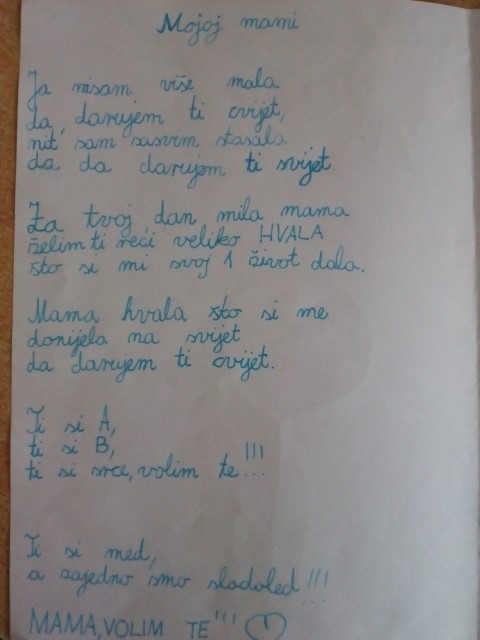 Mojoj mami
Ja nisam više mala
da, darujem ti cvijet,
nit sam sasvim stasala
da da darujem ti svijet
Za tvoj dan mila mama
želim ti reći veliko HVALA
što si mi svoj 1 život dala.
Mama hvala što si me
donijela na svijet
da darujem ti cvijet.
Ti si A,
ti si B,
ti si srce, volim te!!!
Ti si med,
a zajedno smo sladoled!!!
MAMA, VOLIM TE!!!